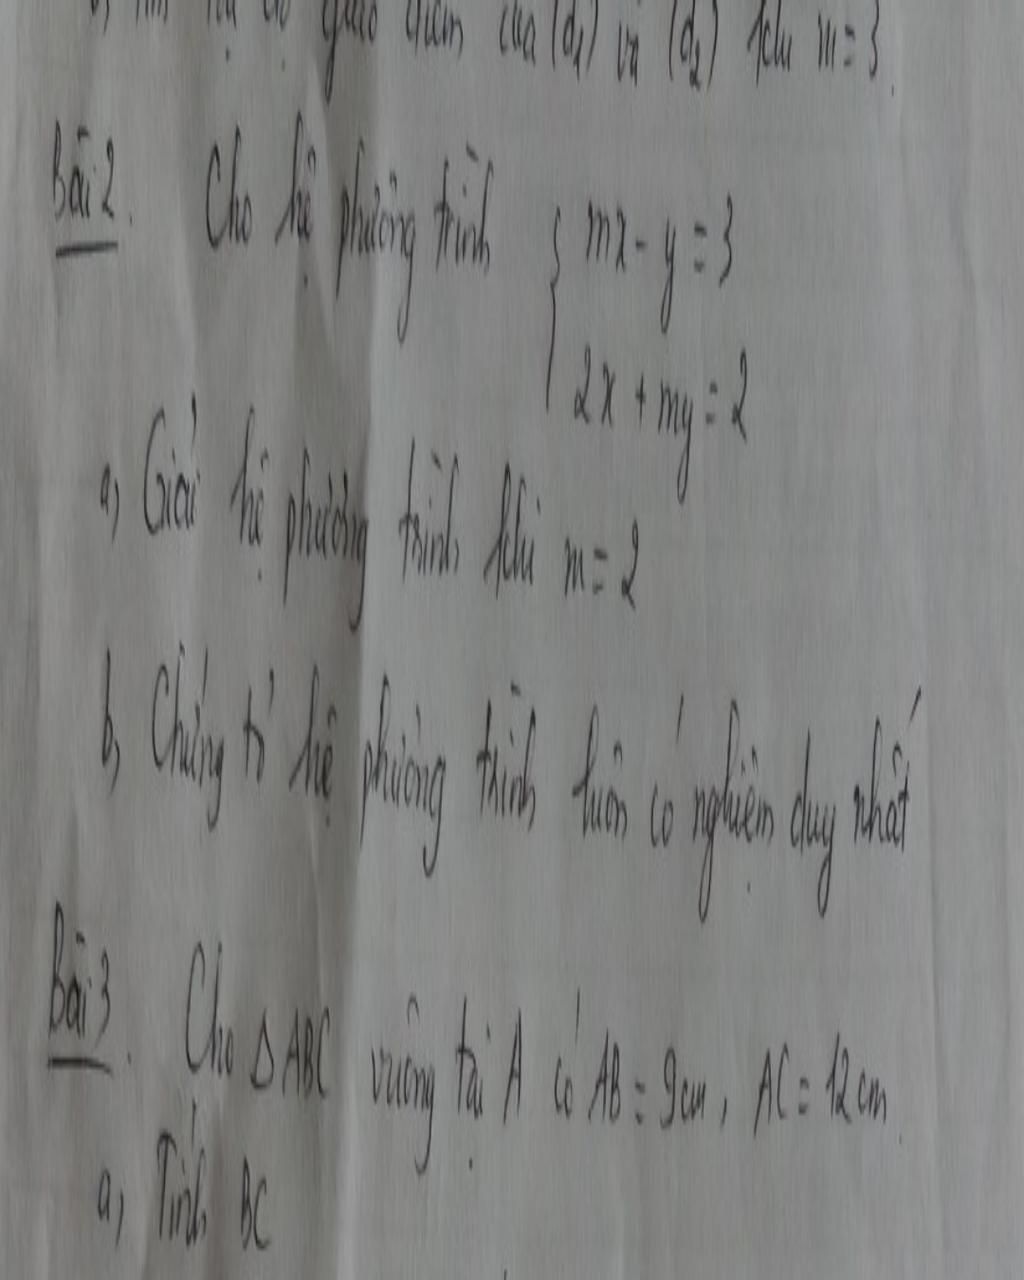 giao điểm của (d1) và (d2) khi m=3.
Bài 2. Cho hệ phương trình { mx - y = 3
2x + my = 2
a, Giải hệ phương trình khi m = 2
b, Chứng tỏ hệ phương trình luôn có nghiệm duy nhất
Bài 3. Cho Δ ABC vuông tại A có AB = 9cm, AC = 12cm.
a, Tính BC